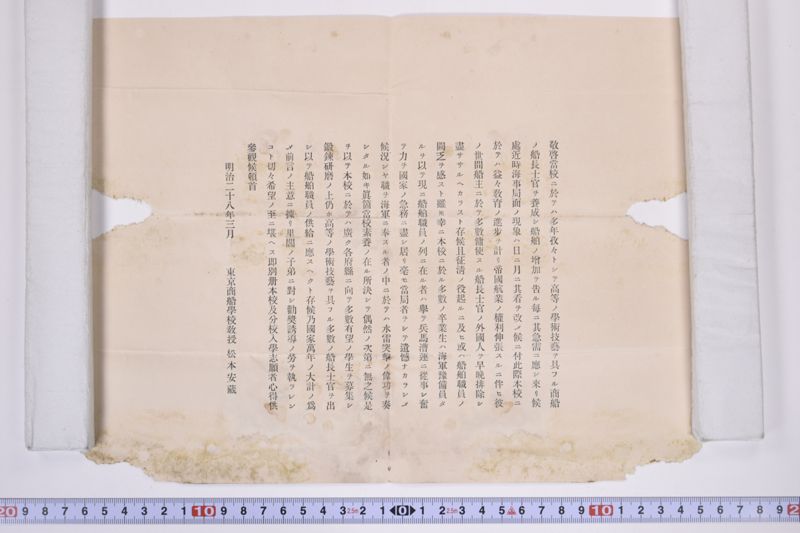 敬啓當校ニ於テハ多年孜々トシテ高等ノ學術技藝ヲ具フル商船
ノ船長士官ヲ養成シ船舶ノ增加ヲ告ル每ニ其急需ニ應シ來リ候
處近時海事局面ノ現象ハ日ニ月ニ其看ヲ改メ候ニ付此際本校ニ
於テハ益々敎育ノ進步ヲ計リ帝國航業ノ權利伸張スルニ伴ヒ彼
ノ世間船主ニ於テ多數傭使スル船長士官ノ外國人ヲ早晩排除シ
盡サヽルヘカラスト存候且征淸ノ役起ルニ及ヒ或ハ船舶職員ノ
闕乏ヲ感スト雖モ幸ニ本校ニ於ル多數ノ卒業生ハ海軍豫備員タ
ルヲ以テ現ニ船舶職員ノ列ニ在ル者ハ擧テ兵馬漕運ニ從事シ奮
テ力ヲ國家ノ急務ニ盡シ居リ毫モ當局者ヲシテ遺憾ナカラシメ
候況シヤ職ヲ海軍ニ奉スル者ノ中ニ於テハ水雷突擊ノ偉功ヲ奏
シタル如キ眞箇當校素養ノ在ル所決シテ偶然ノ次第ニ無之候是
ヲ以テ本校ニ於テハ廣ク各府縣ニ向テ多數有望ノ學生ヲ募集シ
鍛鍊研磨ノ上仍ホ高等ノ學術技藝ヲ具フル多數ノ船長士官ヲ出
シ以テ船舶職員ノ供給ニ應スヘクト存候乃國家萬年ノ大計ノ爲
メ前言ノ主意ニ據リ里閭ノ子弟ニ對シ勸奬誘導ノ勞ヲ執ラレン
コト切々希望ノ至ニ堪ヘス即別册本校及分校入學志願者心得供
參觀候頓首
明治二十八年三月 東京商船學校敎授 松本安藏
20 9 8 7 6 5 4 3 2 1 10 9 8 7 6 5 4 3 2.5m 2 1 0 1 2 2.5m 3 4 5 6 7 8 9 10 1 2 3 4 5 6 7 8 9 2